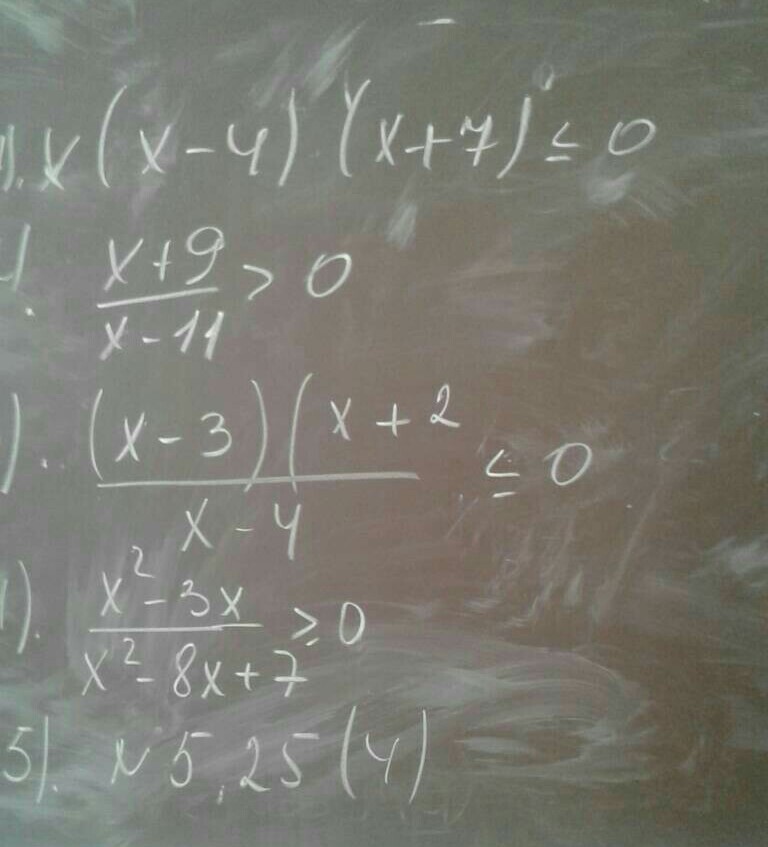 1). x(x-4)(x+7) ≤ 0
x+9
> 0
x-11
). (x-3)(x+2
≤ 0
x-4
). x²-3x
≥ 0
x²-8x+7
5). N 5,25(4)